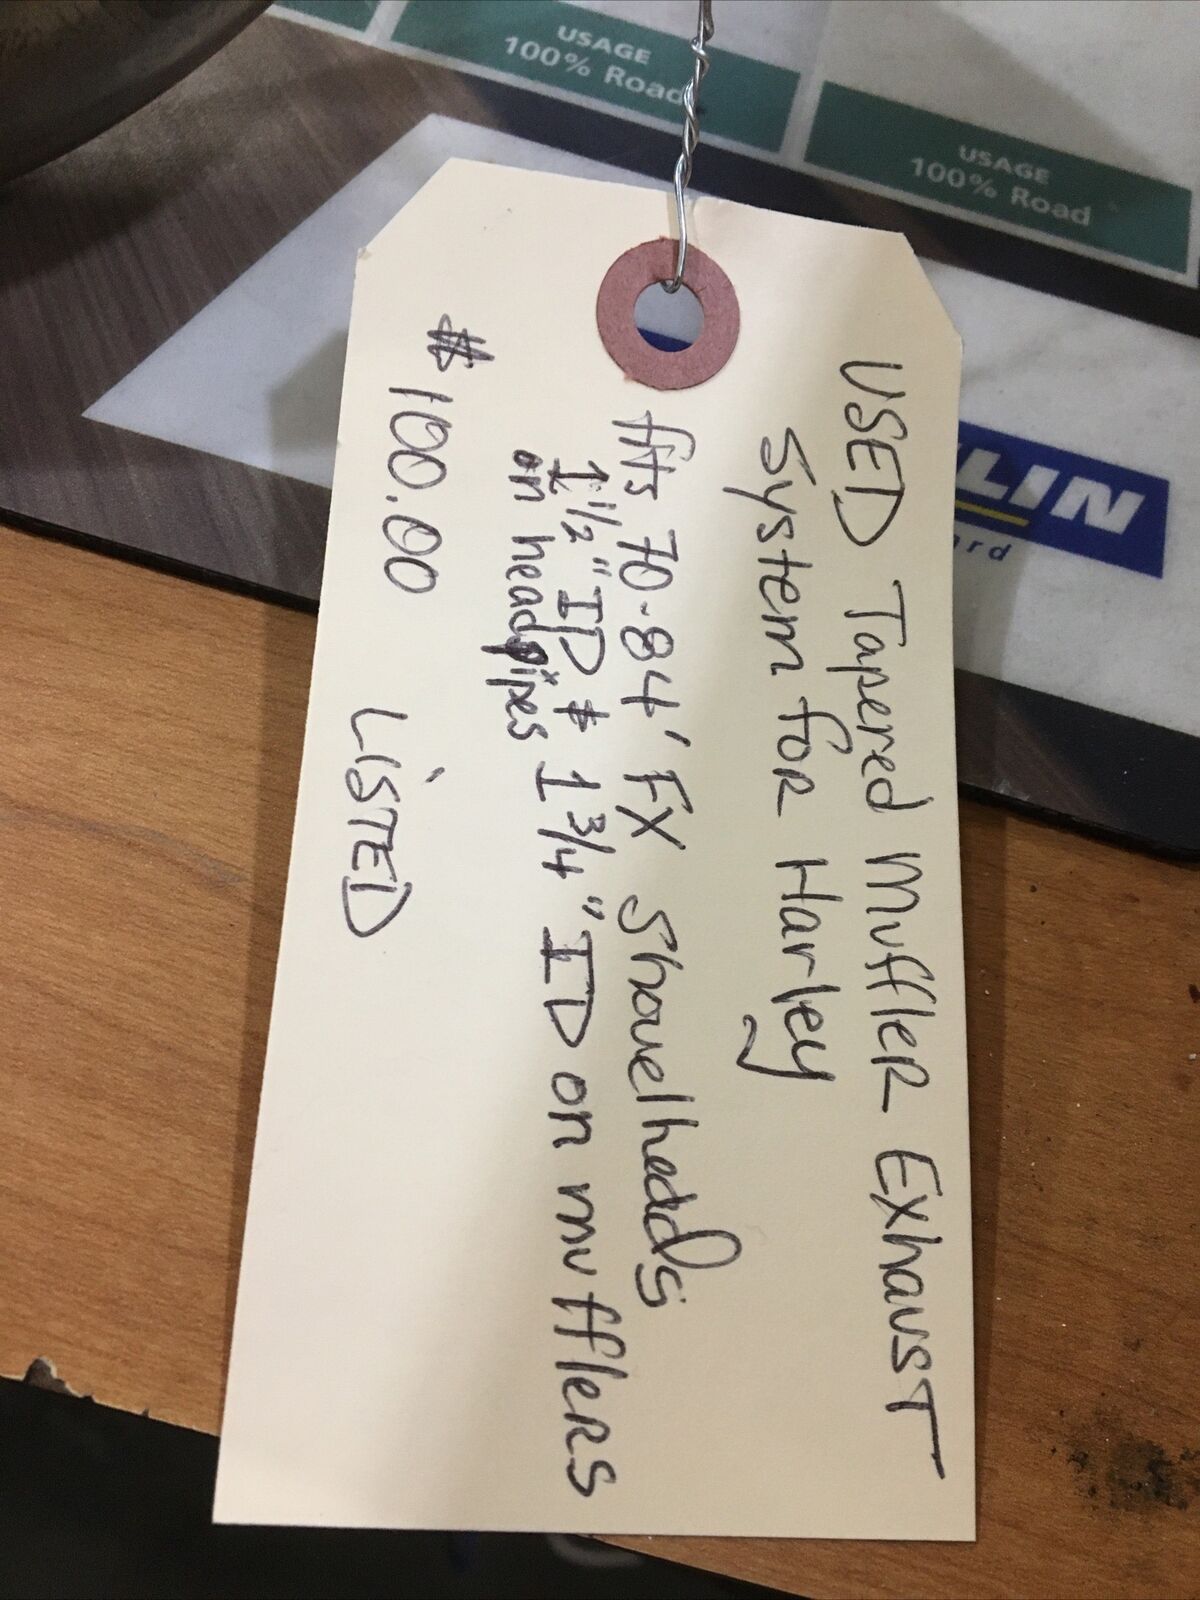 USAGE
100% Road
USAGE
100% Road
LIN
ard
USED Tapered muffler Exhaust
System for Harley
fits 70-84' FX Shovelheads
1 1/2" ID & 1 3/4" ID on mufflers
on headpipes
$100.00 LISTED